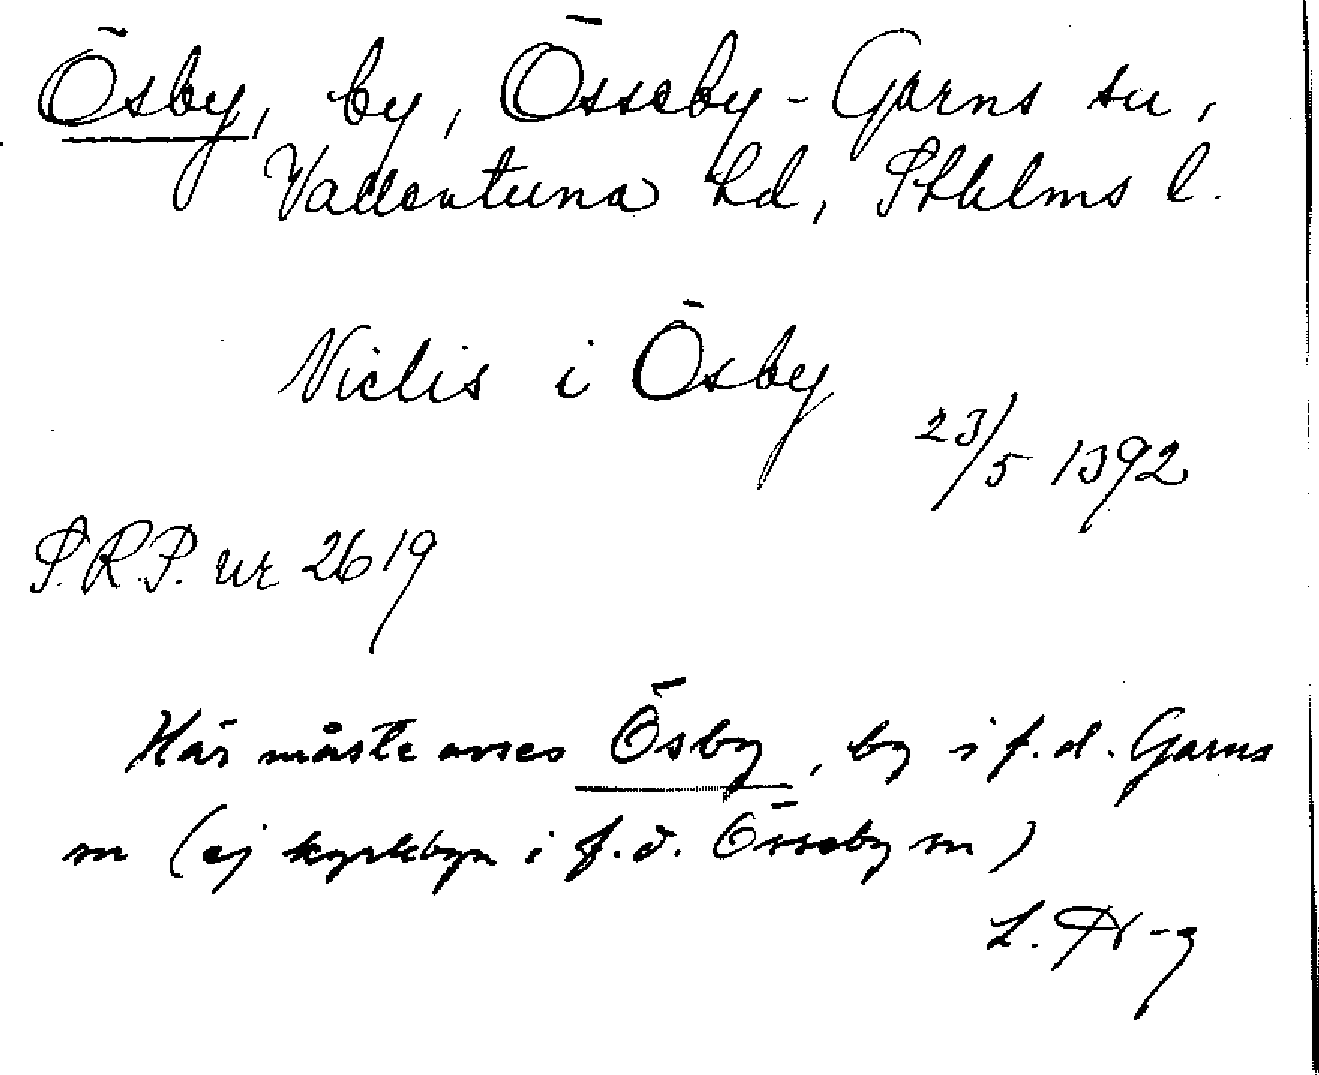 Ösby, by, Össeby-Garns sn,
Vallentuna hd, Sthlms l.
Niclis i Ösby
23/5 1392
S.R.P. nr 2619
Här måste avses Ösby, by i f.d. Garns
sn (ej kyrkbyn i f.d. Össeby sn)